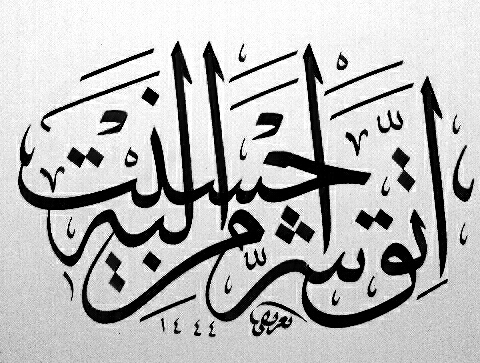 اتق شر من احسنت اليه
١٤٤٤